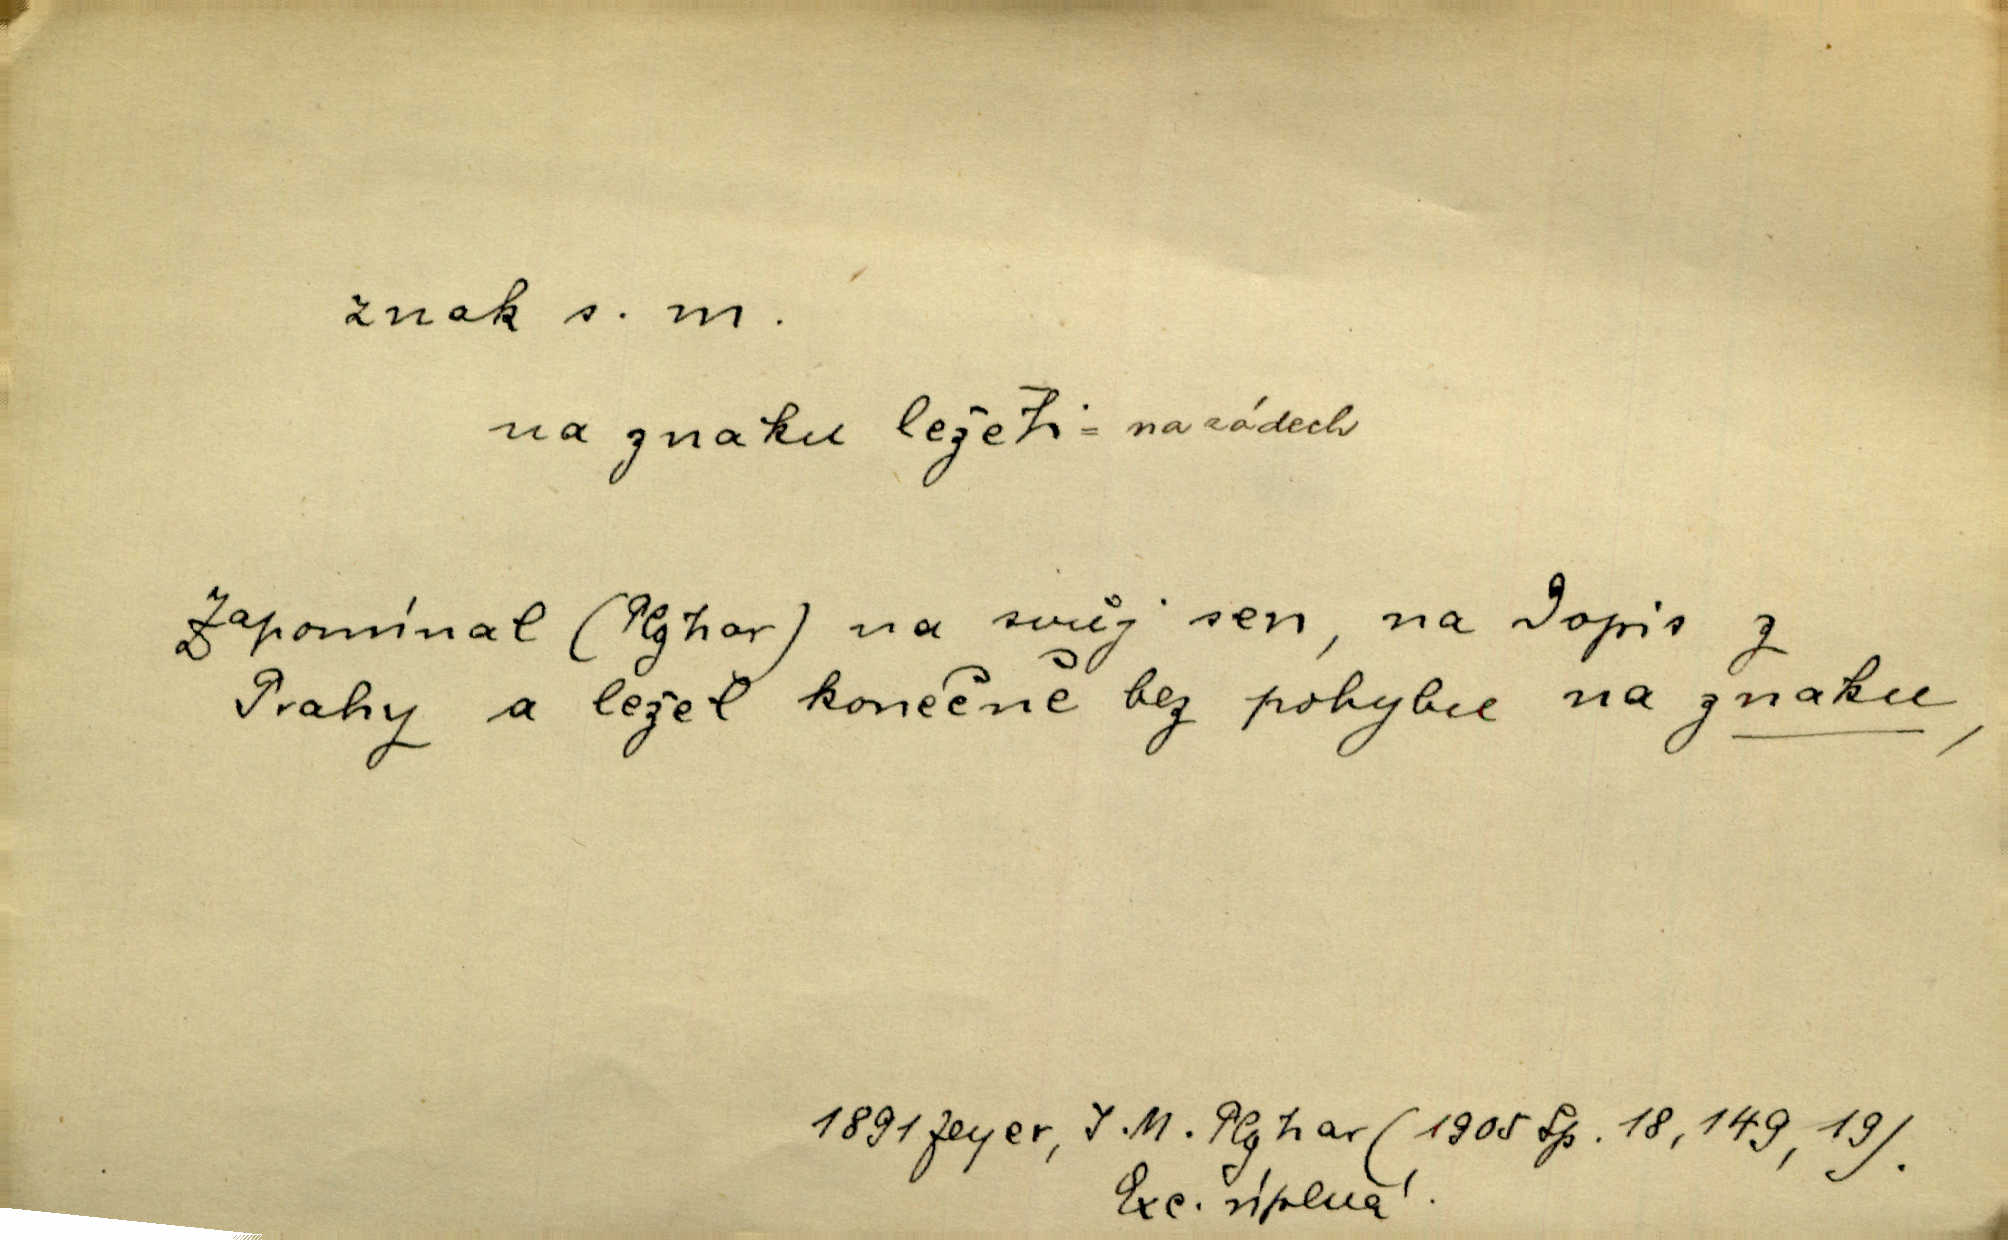 znak s. m.
na znaku ležeti = na zádech
Zapomínal (Plojhar) na svůj sen, na dopis z
Prahy a ležel konečně bez pohybu na znaku,
1891 Zeyer, J. M. Plojhar (1905 Sp. 18, 149, 19).
Exc. úplná.